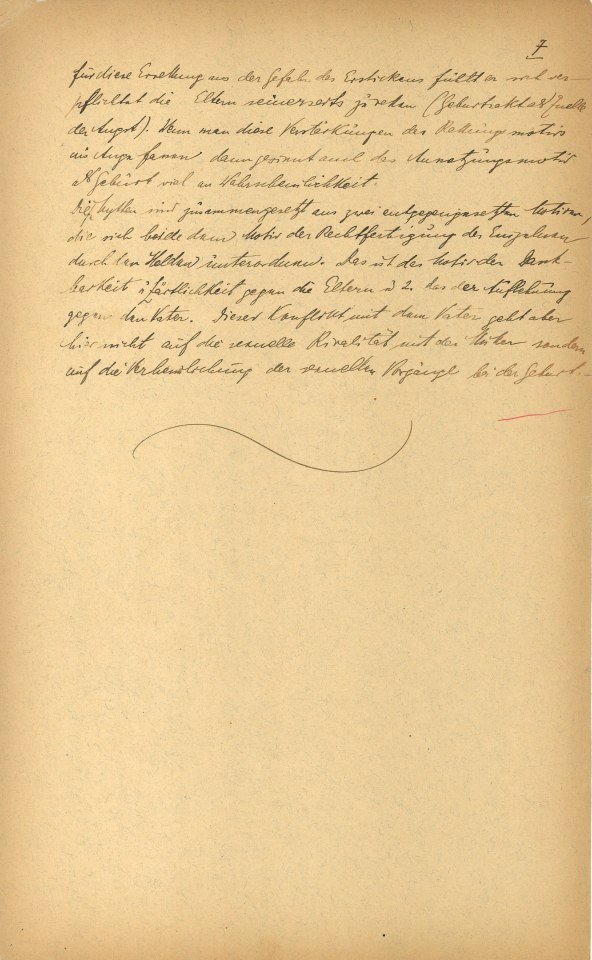 7
für diese Errettung aus der Gefahr des Erstickens fühlt er sich ver-
pflichtet die Eltern seinerseits zu retten (Geburtsakt als Quelle
der Angst). Wenn man diese Verstärkungen des Rettungsmotivs
ins Auge fasst, dann gewinnt auch das Aussetzungsmotiv
als Geburt viel an Wahrscheinlichkeit.
Die Mythen sind zusammengesetzt aus zwei entgegengesetzten Motiven,
die sich beide dem Motiv der Rechtfertigung des Einzelnen
durch den Helden unterordnen. Das ist das Motiv der Dank-
barkeit u Zärtlichkeit gegen die Eltern u 2. das der Auflehnung
gegen den Vater. Dieser Konflikt mit dem Vater geht aber
hier nicht auf die sexuelle Rivalität mit der Mutter sondern
auf die Verheimlichung der sexuellen Vorgänge bei der Geburt.